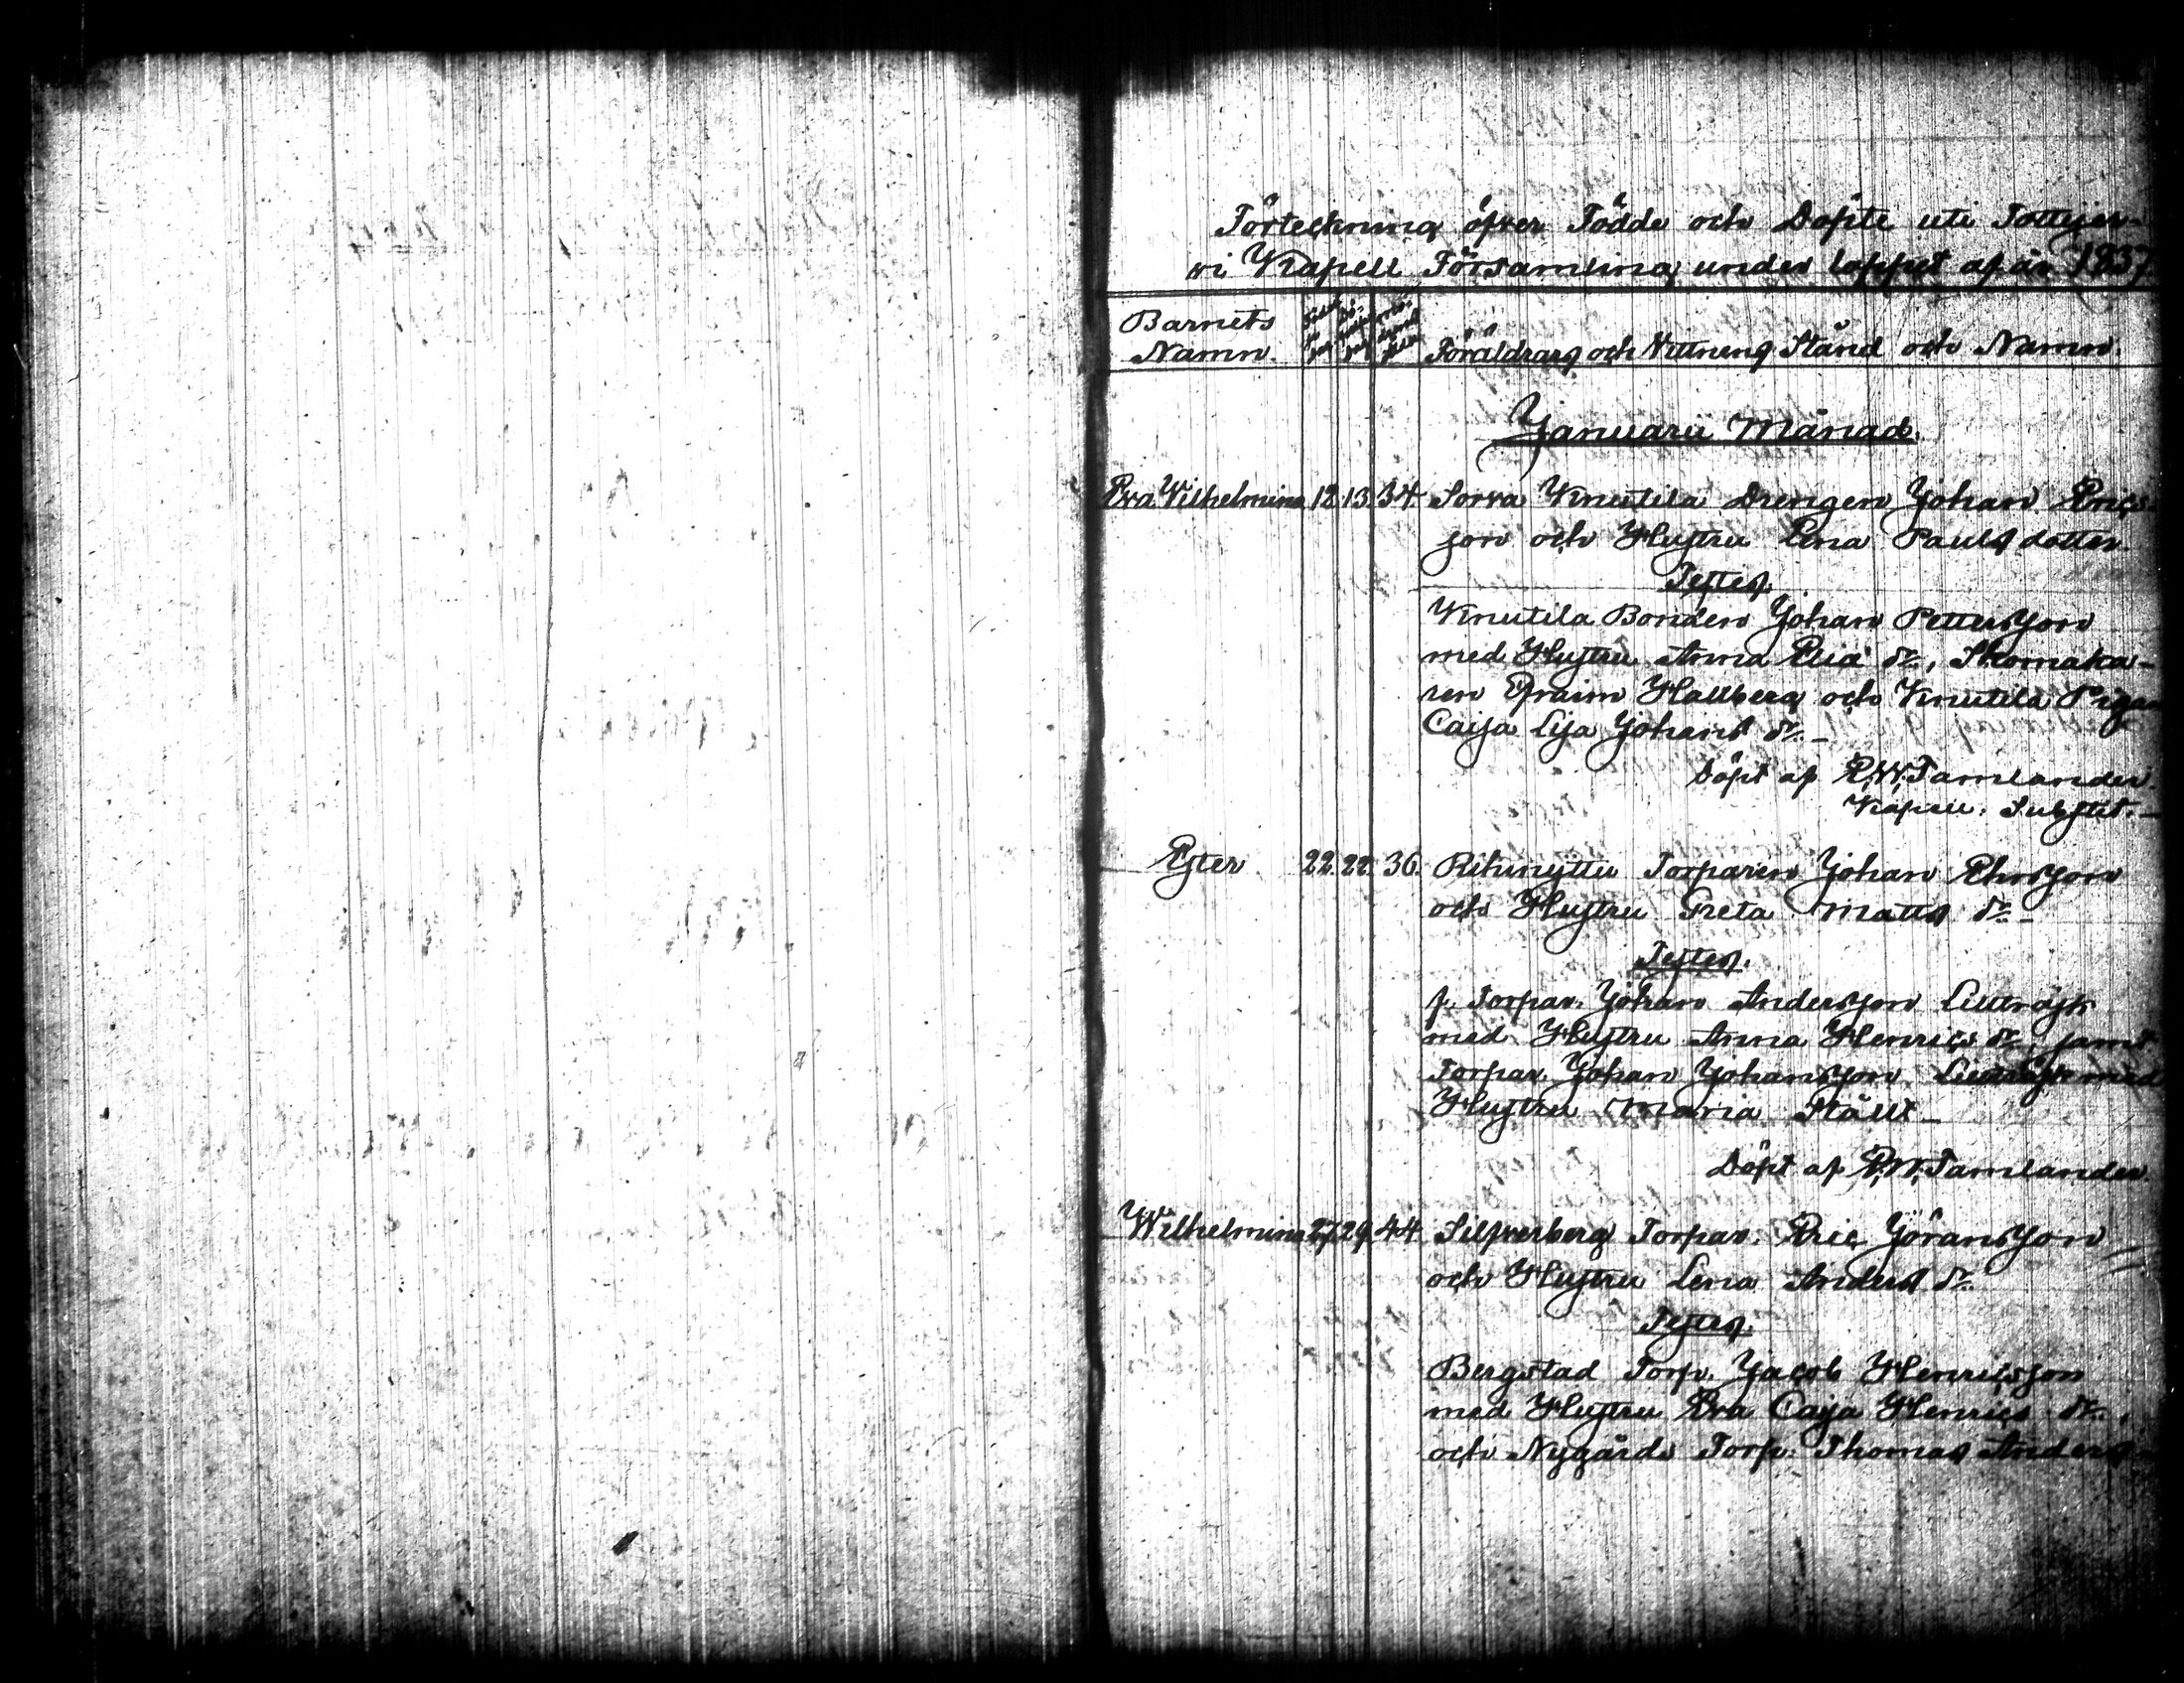 Förteckning öfver Födde och Döpte uti Tottijer-
vi Kapell Församling under loppet af år 1837
Barnets
Namn.
Föräldrars och Vittnens Stånd och Namn.
Januarii Månad.
Eva Wilhelmina 12. 13. 34. Sorva Knutila Drengen Johan Erics-
son och Hustru Lena Pauls dotter.
Testes.
Knutila Bonden Johan Pettersson
med Hustru Anna Elia dr., Skomaka-
ren Efraim Hallberg och Knutila Pigan
Caija Lisa Johans dr. –
Döpt af E. W. Tamlander.
Kapell. Substit. –
Ester 22. 22. 36. Torparen Johan Ehrsson
och Hustru Greta Matts dr. –
Testes.
f. Torpar. Johan Andersson
med Hustru Anna Henrics dr. samt
Torpar. Johan Johansson med
Hustru Maria Ståhl –
Döpt af E. W. Tamlander.
Wilhelmina 27. 29. 44. Silfverberg Torpar. Eric Jöransson
och Hustru Lena Anders dr.
Testes.
Bergstad Torp. Jacob Henricsson
med Hustru Eva Caija Henrics dr.,
och Nygårds Torp. Thomas Anders